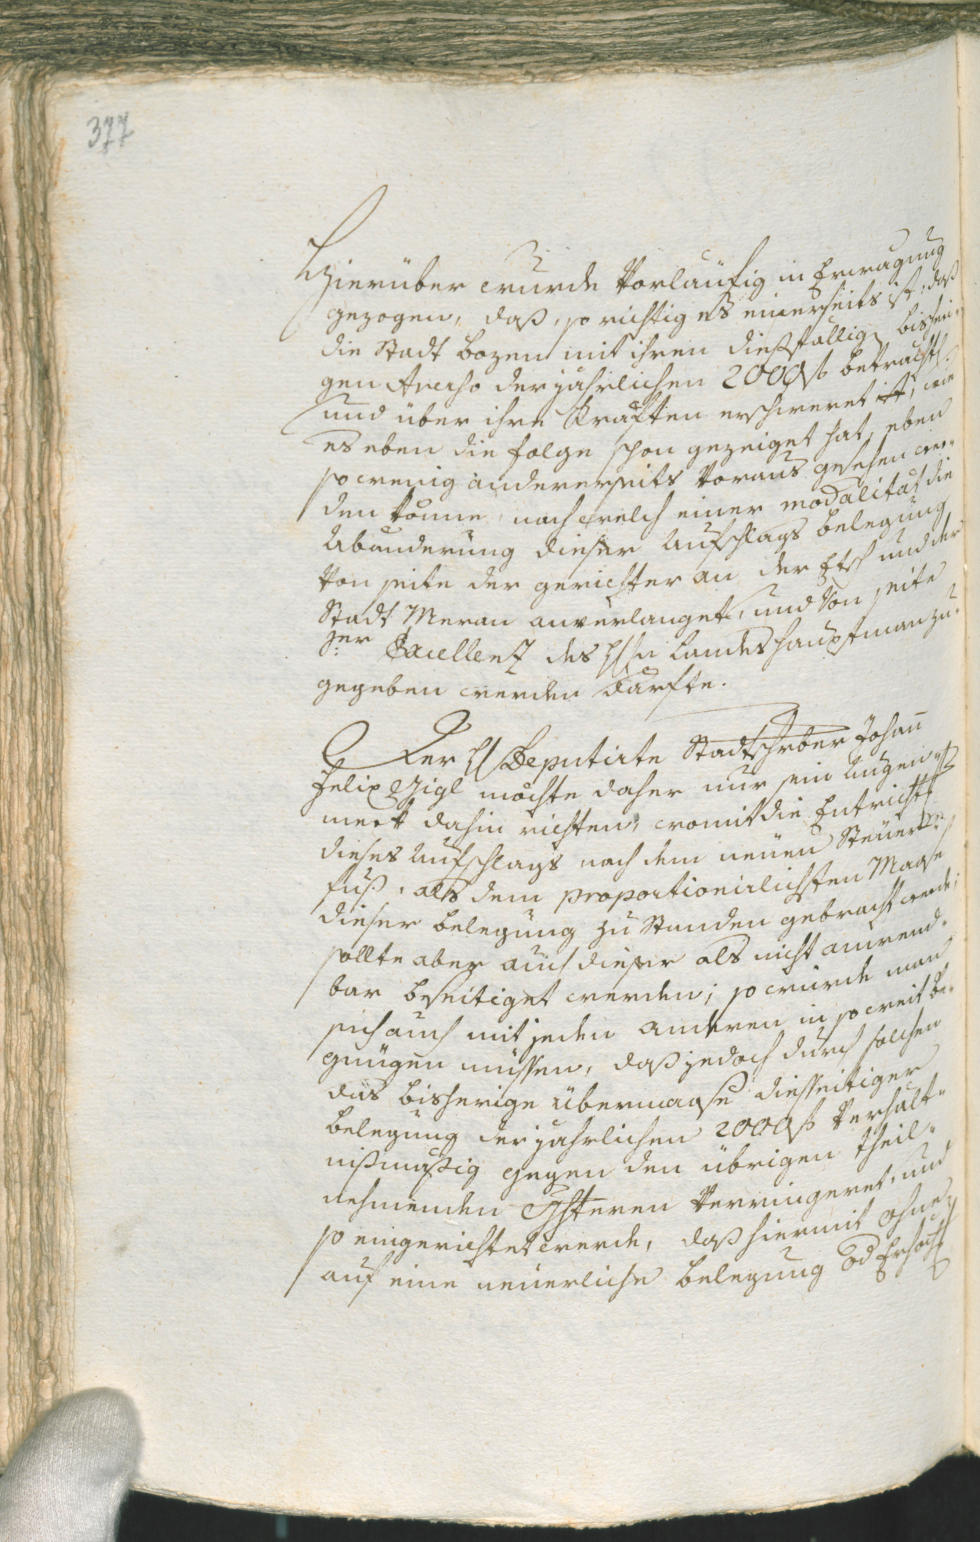 377
Hierüber wurde Vorläufig in Erwagung
gezogen, daß, so richtig es einerseits ist, daß
die Stadt Bozen mit ihren dießfallig bisheri-
gen Averso der jährlichen 2000 f betrachtl:
und über ihre Kräften erschweret ist, wie
es eben die folge schon gezeiget hat, eben
so wenig andererseits Voraus gesehen wer-
den könne, nach welch einer modalitat die
Abänderung dieser Aufschlags belegung
Von seite der gerichter an der Etsch und der
Stadt Meran anverlanget, und Von seite
Sr Excellenz des H: Landeshauptman zu-
gegeben werden därfte.
Der H: Deputirte Stadtschrber Johan̄
Felix Zigl möchte daher nur sein Augen-
merk dahin richten, womit die Entricht:
dieses Aufschlags nach dem neuen Steuer-
fuß, als dem proportionirlichsten Maase
dieser belegung zu Standen gebracht werde;
sollte aber auch dieser als nicht anwend-
bar beseitiget werden; so wurde man
sich auch mit jeden anderen in so weit be-
gnügen müssen, daß jedoch durch solchen
das bisherige übermaase diesseitiger
belegung der jährlichen 2000 f Verhält-
nißmäßig gegen den übrigen theil-
nehmenden Ständen Verringeret, und
so eingerichtet werde, daß hiermit ohne
auf eine neuerliche belegung od Erhöch: